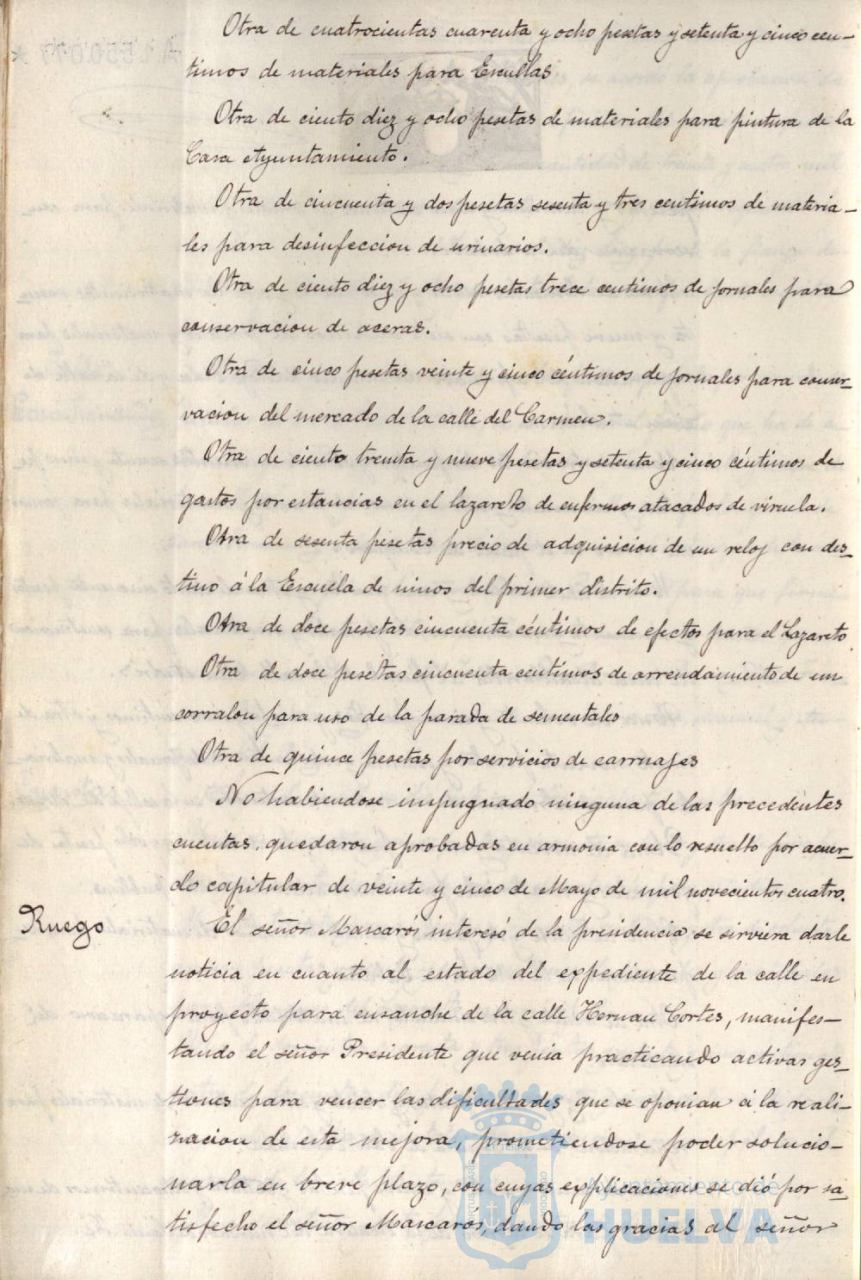 Otra de cuatrocientas cuarenta y ocho pesetas y setenta y cinco cen-
timos de materiales para Escuelas
Otra de ciento diez y ocho pesetas de materiales para pintura de la
Casa Ayuntamiento.
Otra de cincuenta y dos pesetas sesenta y tres centimos de materia-
les para desinfeccion de urinarios.
Otra de ciento diez y ocho pesetas trece centimos de jornales para
conservacion de aceras.
Otra de cinco pesetas veinte y cinco céntimos de jornales para conser-
vacion del mercado de la calle del Carmen.
Otra de ciento treinta y nueve pesetas y setenta y cinco céntimos de
gastos por estancias en el lazareto de enfermos atacados de viruela.
Otra de sesenta pesetas precio de adquisicion de un reloj con des-
tino á la Escuela de ninos del primer distrito.
Otra de doce pesetas cincuenta céntimos de efectos para el Lazareto
Otra de doce pesetas cincuenta centimos de arrendamiento de un
corralon para uso de la parada de sementales
Otra de quince pesetas por servicios de carruajes
No habiendose impugnado ninguna de las precedentes
cuentas, quedaron aprobadas en armonia con lo resuelto por acuer-
do capitular de veinte y cinco de Mayo de mil novecientos cuatro.
Ruego
El señor Mascarós interesó de la presidencia se sirviera darle
noticia en cuanto al estado del expediente de la calle en
proyecto para ensanche de la calle Hernan Cortes, manifes-
tando el señor Presidente que venia practicando activas ges-
tiones para vencer las dificultades que se oponian á la reali-
zacion de esta mejora, prometiendose poder solucio-
narla en breve plazo, con cuyas explicaciones se dió por sa-
tisfecho el señor Mascaros, dando las gracias al señor
Ayuntamiento de
HUELVA